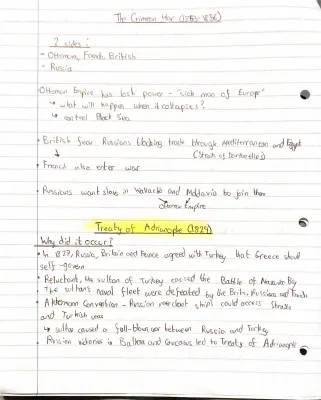 The Crimean War (1853-1856)
2 sides:
- Ottoman, French British
- Russia
Ottoman Empire has lost power - "sick man of Europe"
↳ what will happen when it collapses?
↳ control Black Sea
• British fear Russians blocking trade through Mediterranean and Egypt
(Straits of Dardanelles)
• French also enter war
• Russians want slavs in Wallachia and Moldavia to join them
Ottoman Empire
Treaty of Adrianople (1829)
Why did it occur?
• In 1827, Russia, Britain and France agreed with Turkey that Greece should
self-govern
• Reluctant, the sultan of Turkey caused the Battle of Navarino Bay
The sultan's naval fleet were defeated by the Brits, Russians and French
• Akkerman Convention - Russian merchant ships could access Straits
and Turkish seas
↳ sultan caused a full-blown war between Russia and Turkey
Russian victories in Balkans and Caucasus led to Treaty of Adrianople